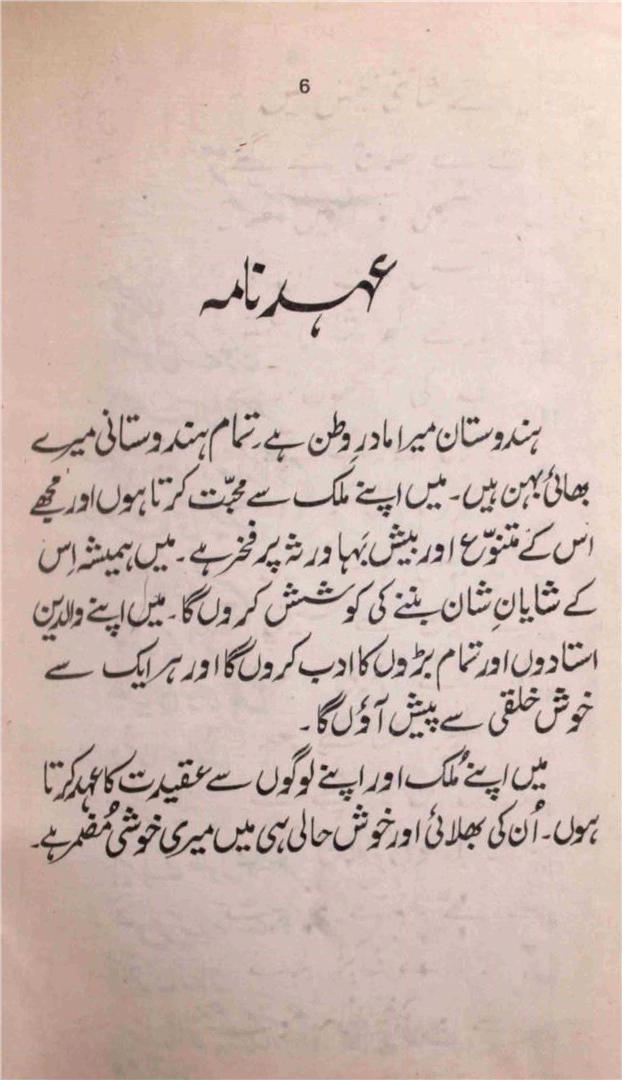 6
عہد نامہ
ہندوستان میرا مادرِ وطن ہے۔ تمام ہندوستانی میرے
بھائی بہن ہیں۔ میں اپنے ملک سے محبّت کرتا ہوں اور مجھے
اس کے متنوّع اور بیش بہا ورثہ پر فخر ہے۔ میں ہمیشہ اِس
کے شایانِ شان بننے کی کوشش کروں گا۔ میں اپنے والدین
استادوں اور تمام بڑوں کا ادب کروں گا اور ہر ایک سے
خوش خلقی سے پیش آؤں گا۔
میں اپنے مُلک اور اپنے لوگوں سے عقیدت کا عہد کرتا
ہوں۔ اُن کی بھلائی اور خوش حالی ہی میں میری خوشی مُضمر ہے۔